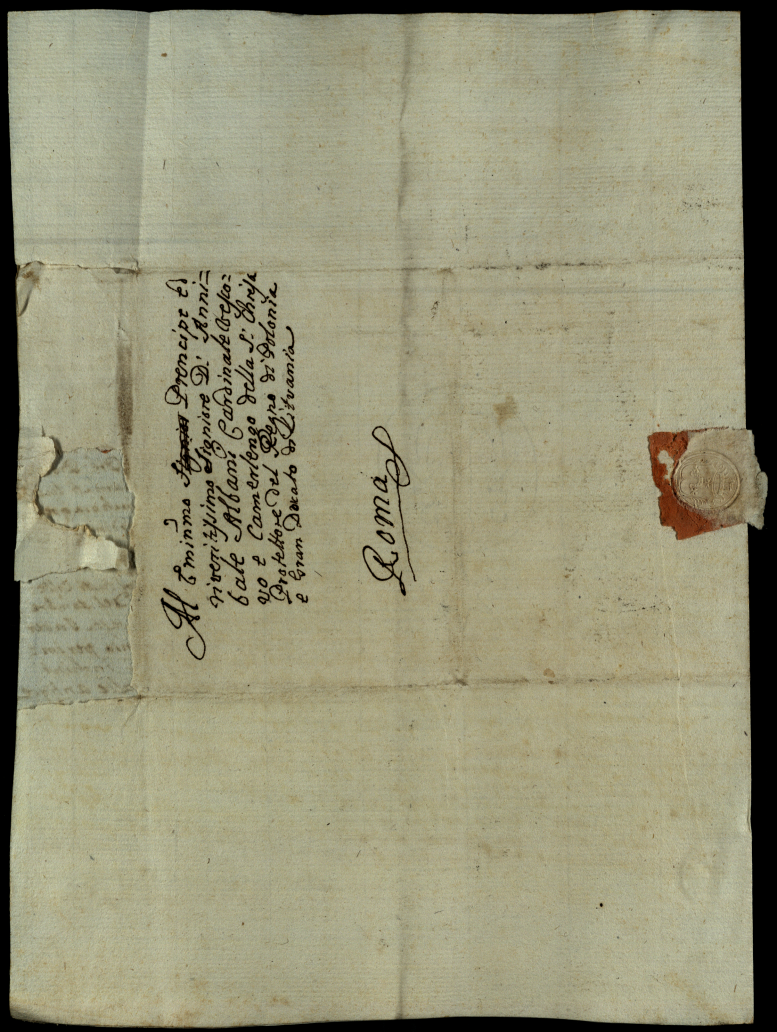 Al Eminmo Prencipe ed
riveritissimo Signore D. Anni=
bale Albani Cardinale Vesco=
vo e Camerlengo della S. Chiesa
Protettore del Regno di Polonia
e Gran Ducato di Lituania
Roma